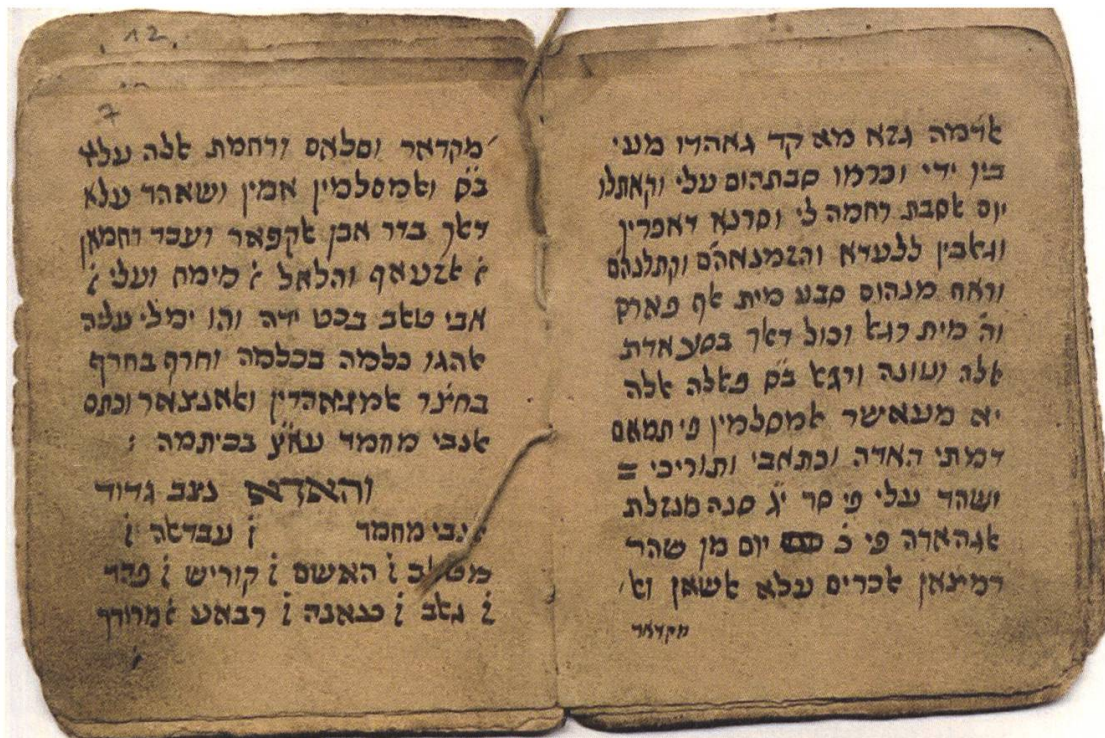 אדמה גזא מא קד גאהדו מעי
בין ידי וכרמו סבתהום עלי וקאתלו
יום אסבת רחמה לי וסרנא דאפרין
וגאבין ללעדא והזמנאהם וקתלנהם
וראח מנהום סבע מית אף פארס
וה' מית רגא וכול דאך בסעאדת
אלה ועונה ורגא ב״ס פאלה אלה
יא מעאישר אמסלמין פי תמאם
דמתי האדה וכתאבי ותוריכי =
ושהד עלי פי סר י״ג סנה מנזלת
אגהארה פי כ׳ יום מן שהר
רמינאן אכרים עלא אשאן וא׳
מקדאר
12
7
מקדאר וסלאם ורחמת אלה עליך
ב״ס ואמסלמין אמין ושאהד עלא
דאך בדר אבן אקפאר ועבד רחמאן
ן׳ אזעאף והלאל ן׳ מימח ועלי ן׳
אבי טאב בכט ידה והו ימלי עליה
אהגו כלמה בכלמה וחרף בחרף
בחיצר אמגאהדין ואאנצאר וכתם
אנבי מחמד עא״ץ בכיתמה :
והאדא נצב גדוד
אנבי מחמד ן׳ עבדאה ן׳
מטאב ן׳ האשם ן׳ קוריש ן׳ פהר
ן׳ גאב ן׳ כנאנה ן׳ רבאע